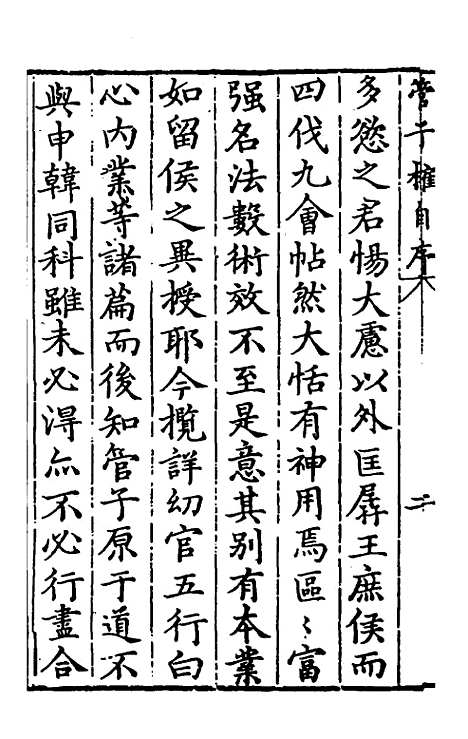 管子榷自序 二
多慾之君惕大慮以外匡孱王庶侯而
四伐九會帖然大恬有神用焉區〻富
强名法數術效不至是意其别有本業
如留侯之異授耶今攬詳幼官五行白
心内業等諸篇而後知管子原于道不
與申韓同科雖未必淂亦不必行盡合